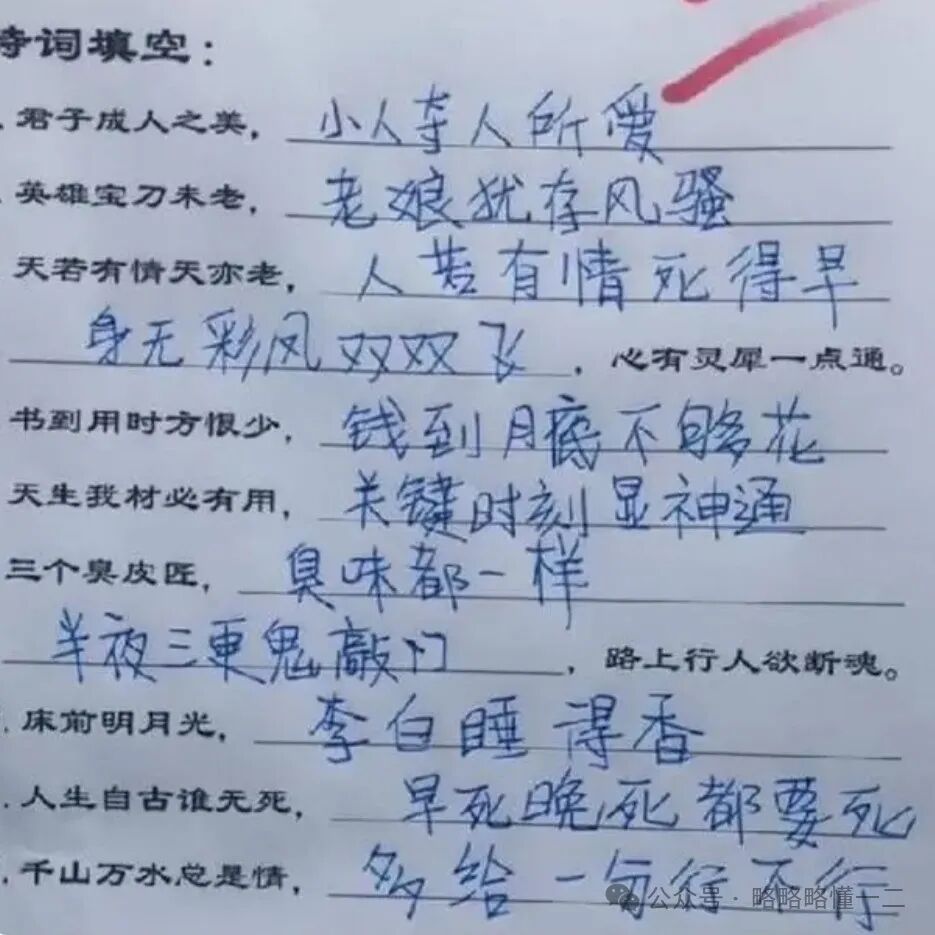 诗词填空：
君子成人之美，小人夺人所爱
英雄宝刀未老，老娘犹存风骚
天若有情天亦老，人若有情死得早
身无彩凤双双飞，心有灵犀一点通。
书到用时方恨少，钱到月底不够花
天生我材必有用，关键时刻显神通
三个臭皮匠，臭味都一样
半夜三更鬼敲门，路上行人欲断魂。
床前明月光，李白睡得香
人生自古谁无死，早死晚死都要死
千山万水总是情，多给一句行不行
公众号·略略略懂一二